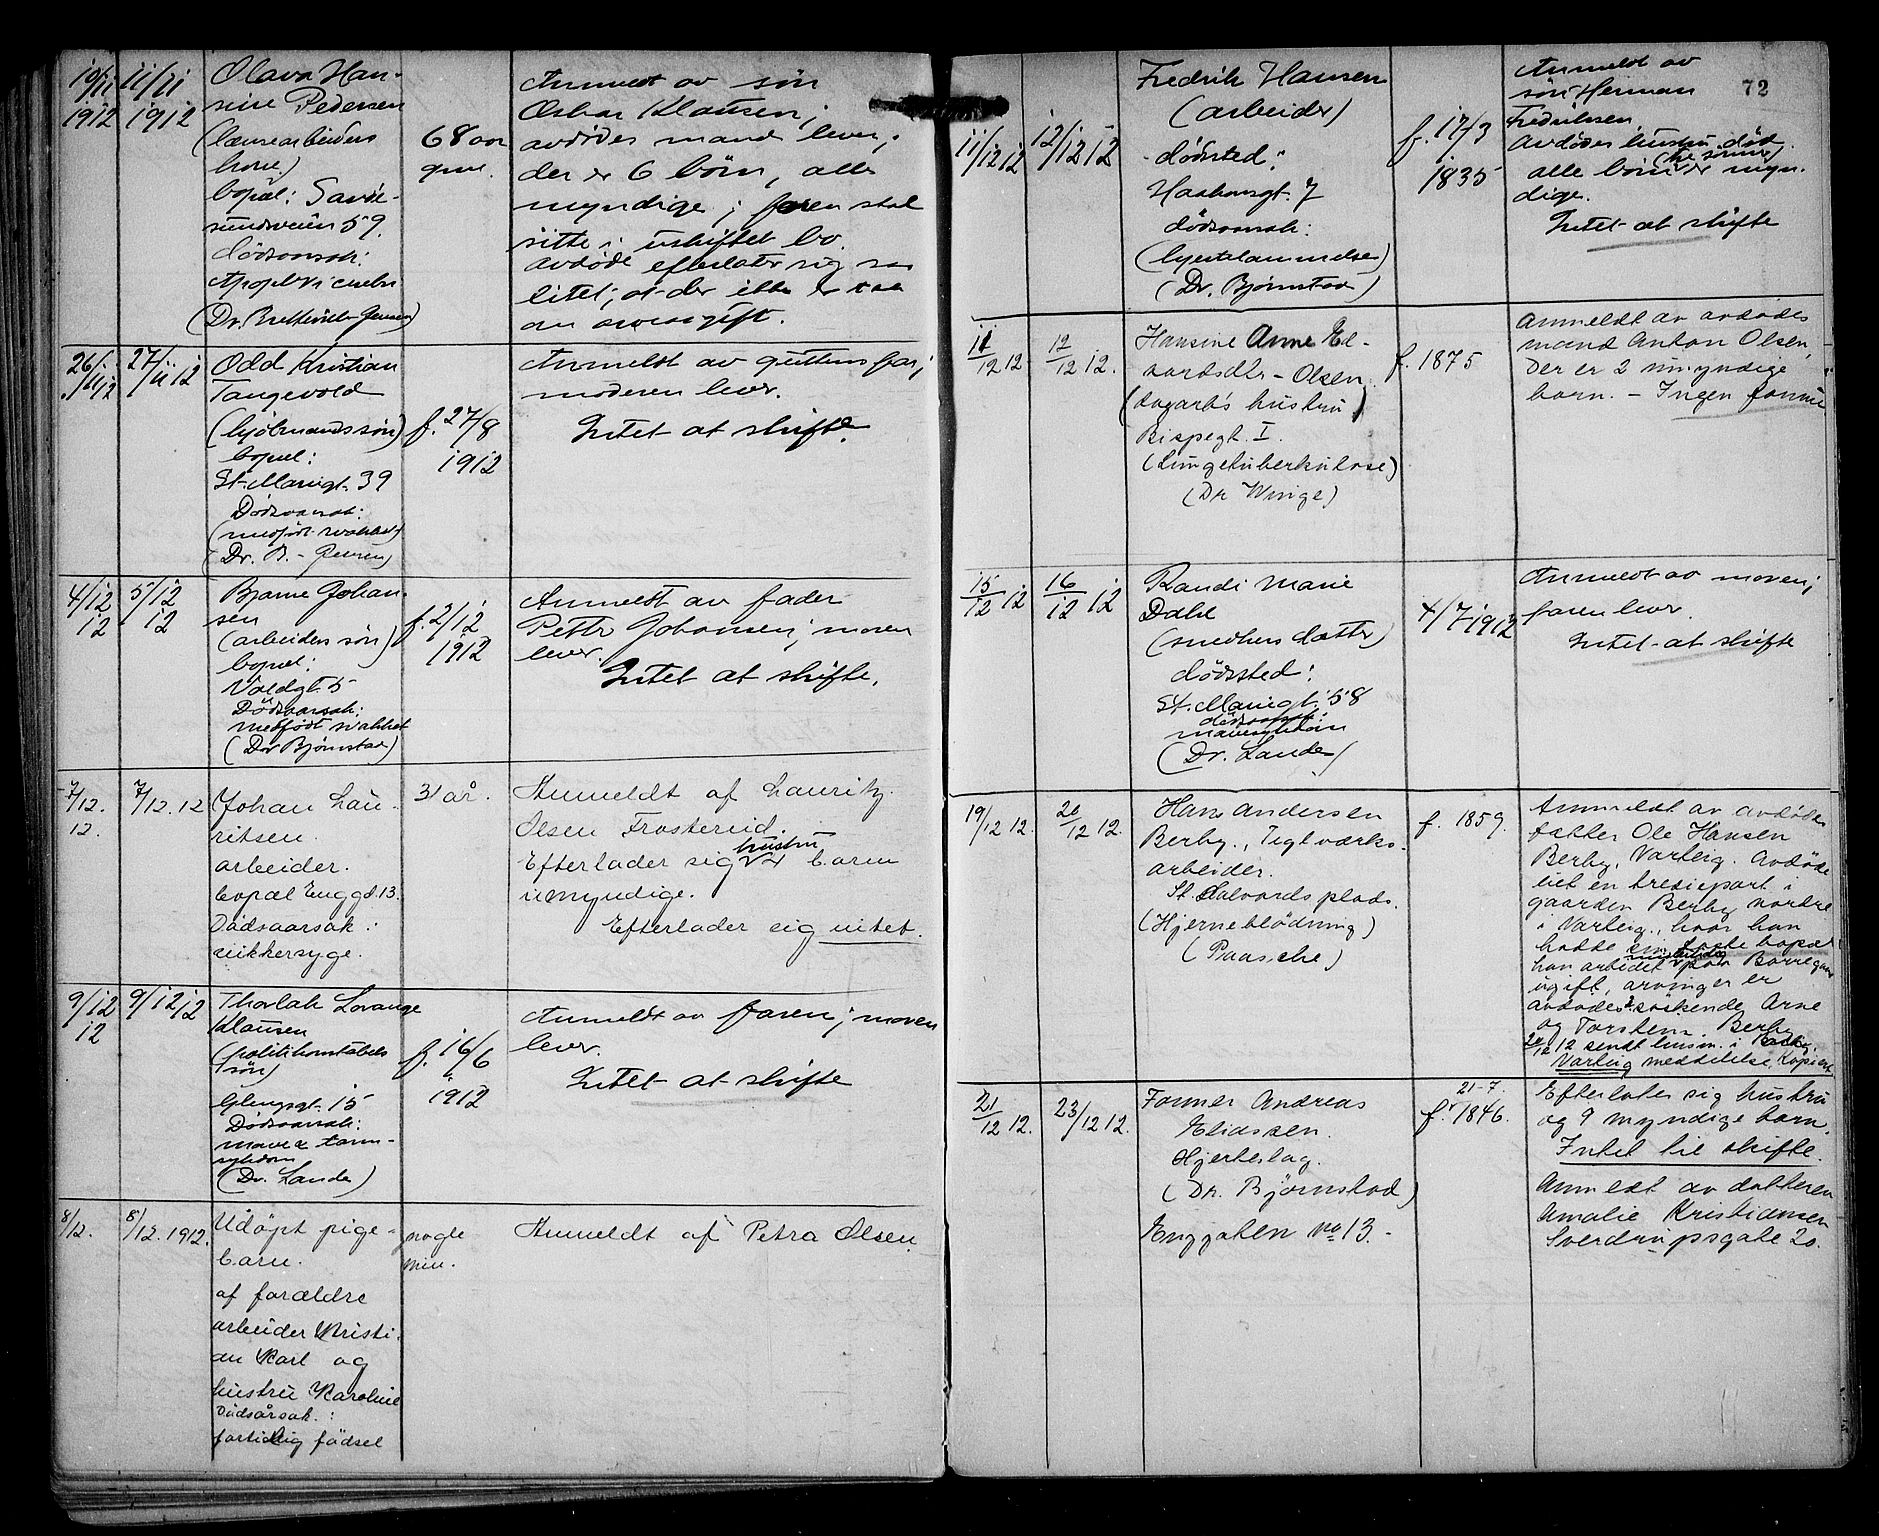 10/11 1912
11/11 1912
Olava Han-
sine Pedersen
(lænsearbeiders
kone)
bopæl: Sand-
sundveien 59.
dödsaarsak:
Apoplexi cerebri
(Dr. Jensen)
68 aar
gml.
Anmeldt av søn
Oskar Klausen;
avdödes mand lever;
der er 6 börn, alle
myndige; faren skal
sitte i uskiftet bo.
avdöde efterlater sig saa
litet, at der ikke er
om arveavgift.
26/11 12
27/11 12
Odd Kristian
Tangevold
(sön)
bopæl:
St. Mariegt. 39
Dødsaarsak:
(medfödt svakhet)
(Dr. B. - Jensen)
f. 27/8
1912
Anmeldt av guttens far;
moderen lever.
Intet at skifte.
4/12
12
5/12
12
Bjarne Johan-
sen
(arbeiders søn)
bopæl:
Voldgt. 5
Dödsaarsak:
medfödt svakhet
(Dr Bjørnstad)
f. 2/12
1912
Anmeldt av fader
Petter Johansen; moren
lever.
Intet at skifte.
7/12.
12.
7/12. 12
Johan Lau-
ritsen.
arbeider.
bopæl Enggd. 13.
Dödsaarsak:
sukkersyge.
31 år.
Anmeldt af Lauritz
Olsen
hustru
Efterlader sig barn
umyndige.
Efterlader sig intet.
9/12
12
9/12 12
Thorlak Lorange
Klausen
(politikonstabels
søn)
Glengsgt. 15
Dödsaarsak:
mave & tarm-
sykdom
(Dr. Lande)
f. 16/6
1912
Anmeldt av faren; moren
lever.
Intet at skifte
8/12.
8/12. 1912.
Udöpt pige-
barn.
af forældre
arbeider Kristi-
an Karl og
hustru Karoline
Dödsårsak:
fortidlig födsel
nogle
min.
Anmeldt af Petra Olsen.
72
11/12 12
12/12 12
Fredrik Hansen
(arbeider)
dödsted:
Haakonsgt. 7
dödsaarsak:
(hjertelammelse)
(Dr. Bjørnstad)
f. 17/3
1835
Anmeldt av
søn Herman
Fredriksen,
avdødes hustru död.
alle börn er myn-
dige.
Intet at skifte
11/12 12
12/12 12.
Hansine Anne Ed-
vardsdtr - Olsen.
(dagarb's hustru)
Bispegt. 1.
(Lungetuberkulose)
(Dr Winge)
f. 1875
Anmeldt av avdödes
mand Anton Olsen,
Der er 2 umyndige
barn. - Ingen formue
15/12 12
16/12 12
Randi Marie
Dahl
(snedkers datter)
dödsted:
St. Mariegt. 58
dödsaarsak:
mavesykdom
(Dr. Lande)
4/7 1912
Anmeldt av moren;
faren lever.
Intet at skifte
19/12 12.
20/12 12.
Hans Andersen
Berby., Teglværks-
arbeider.
St. Halvords plads.
(Hjerneblödning)
(Paasche)
f. 1859.
Anmeldt av avdødes
fætter Ole Hansen
Berby, Varteig. Avdøde
eiet en trediepart i
gaarden Berby nordre
i Varteig., hvor han
hadde sin faste bopæl
han arbeidet paa Borregaard
ugift, arvinger er
avdødes 2 söskende Arne
og Torstein. Berby
20/12 12 sendt lensm. i
Varteig meddelelse. Kopiert
21/12 12.
23/12 12.
Former Andreas
Eliassen.
Hjerteslag.
(Dr. Björnstad)
Enggaten No 13.
21-7.
f. 1846.
Efterlates sig hustru
og 9 myndige barn.
Intet til skifte.
Anmeldt av datteren
Amalie Kristiansen
Sverdrupsgate 20.